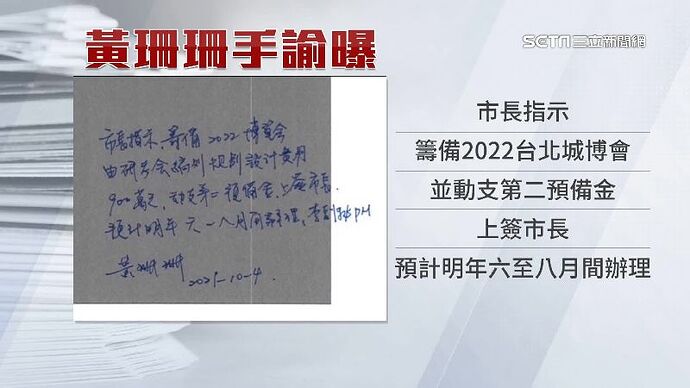 黃珊珊手諭曝
SETN三立新聞網
市長指示籌備2022博覽會
由研考會編列規劃設計費用
動支第二預備金,上簽市長.
預計明年六－八月間辦理, PM
黃珊珊 2021-10-4.
市長指示
籌備2022台北城博會
並動支第二預備金
上簽市長
預計明年六至八月間辦理